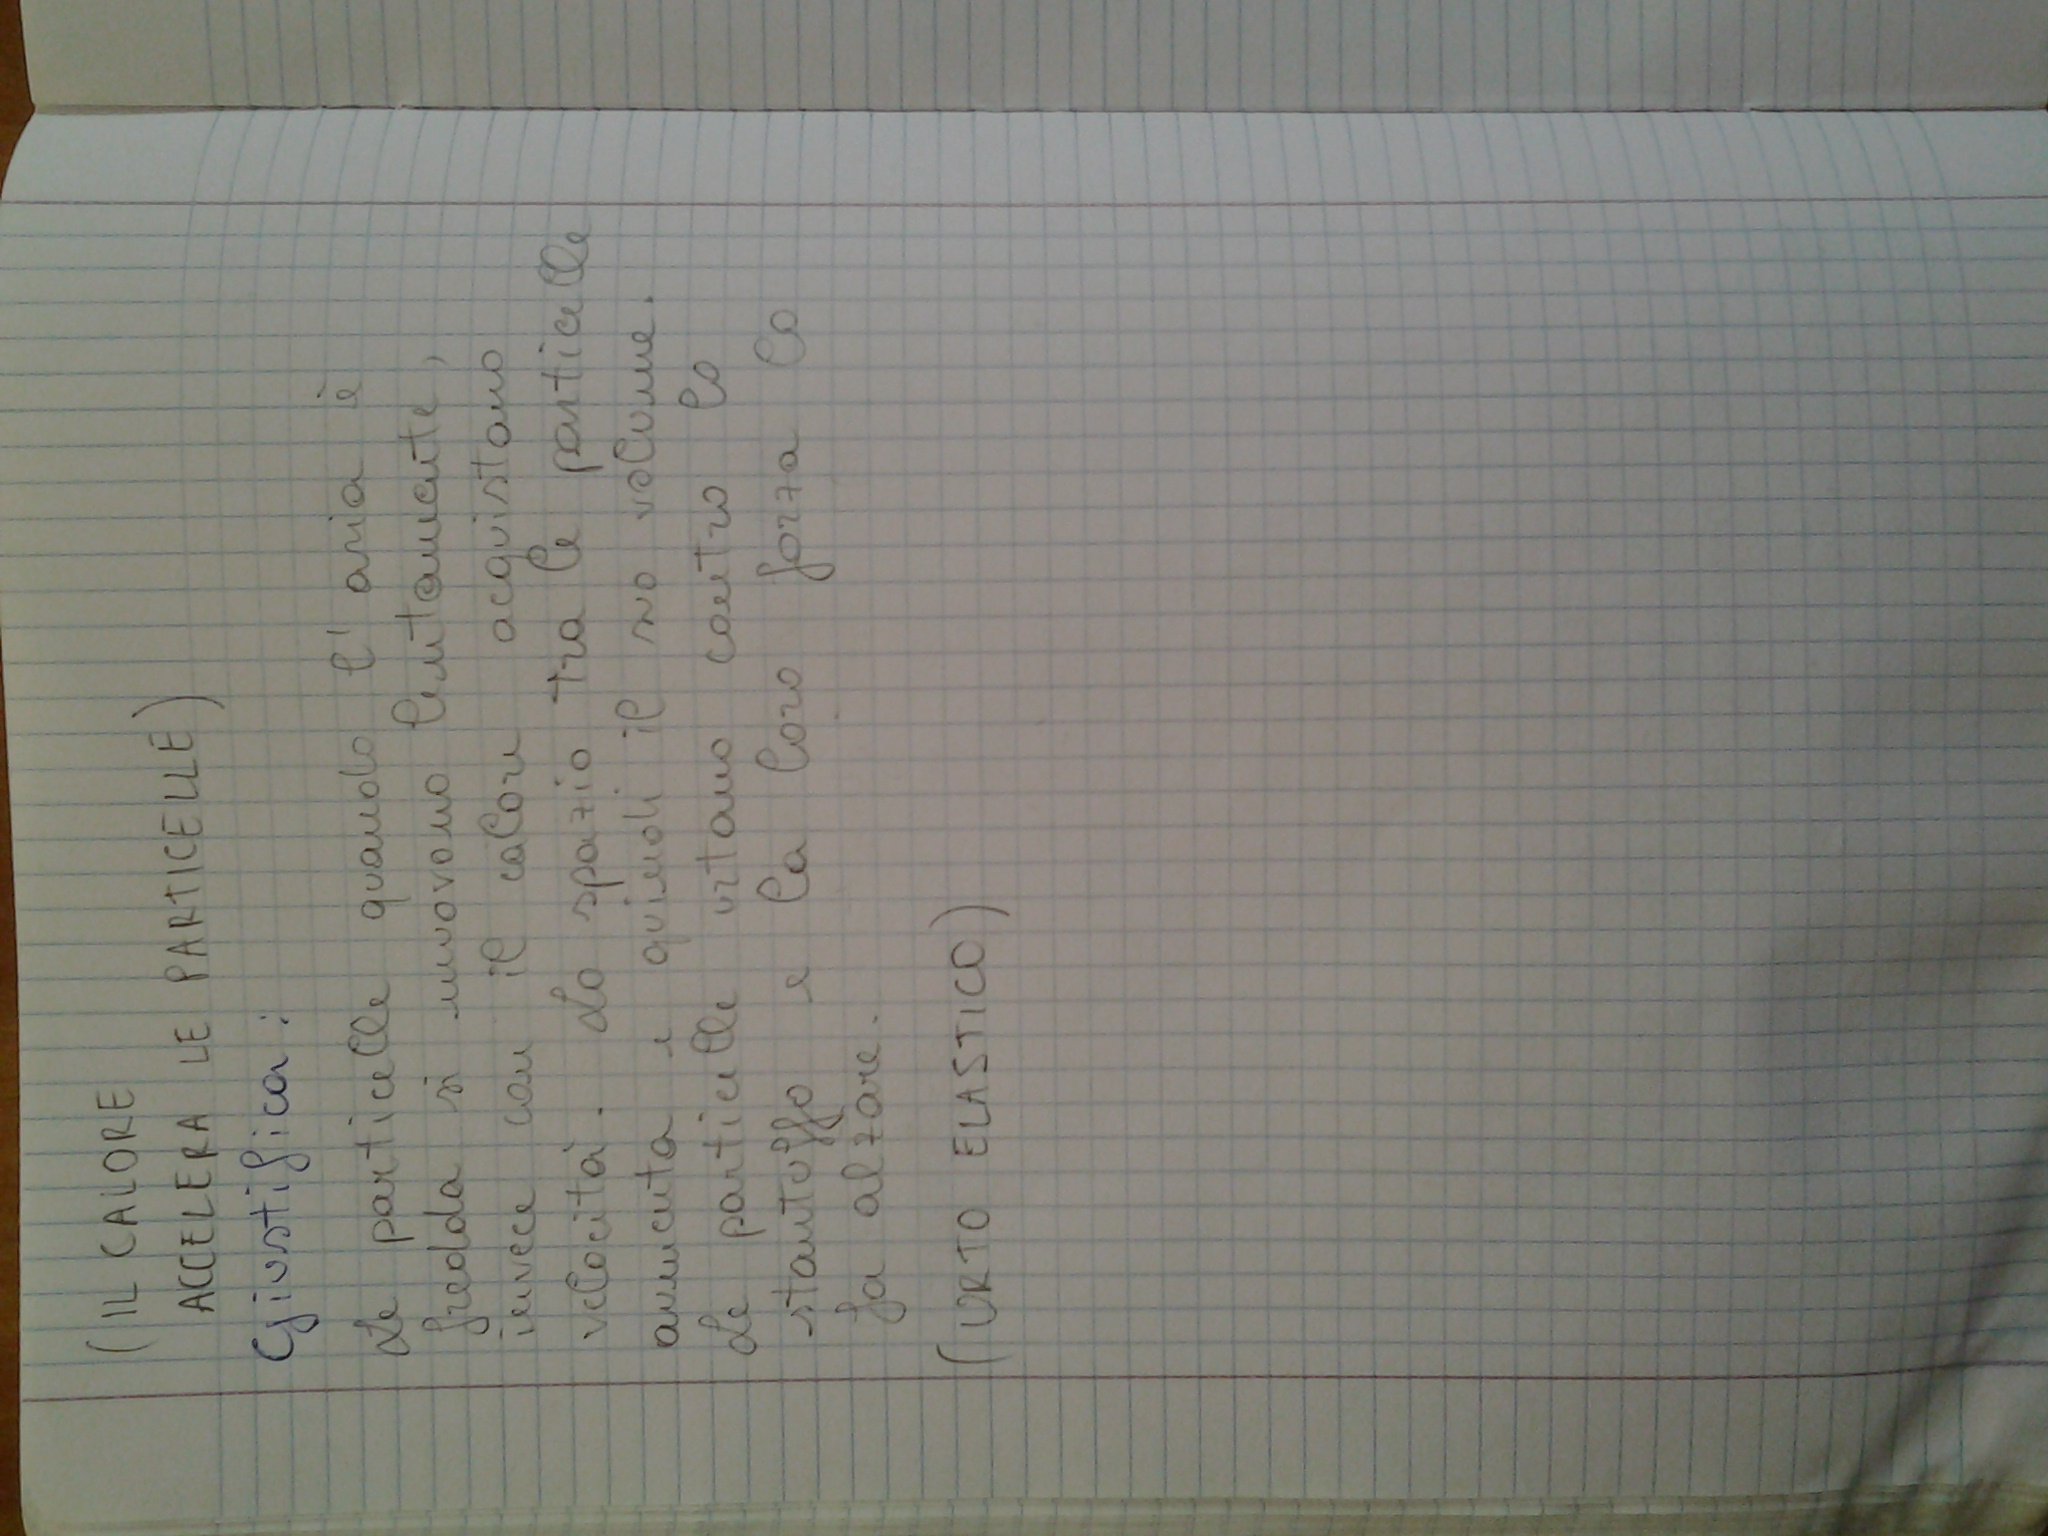 (IL CALORE
ACCELERA LE PARTICELLE)
Giustifica:
Le particelle quando l'aria è
fredda si muovono lentamente,
invece con il calore acquistano
velocità. Lo spazio tra le particelle
aumenta e quindi il suo volume.
Le particelle urtano contro lo
stantuffo e la loro forza lo
fa alzare.
(URTO ELASTICO)